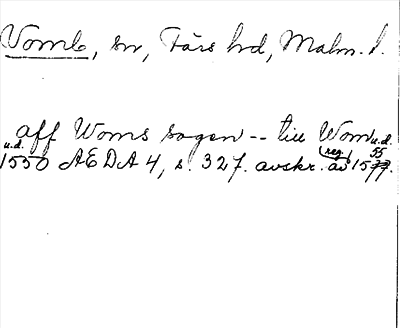 Vomb, sn, Färs hd, Malm. l.
aff Woms sogen -- till Wom u.d.
u.d. 1550 AEDA 4, s. 327. avskr. (reg.) av 1577. 55